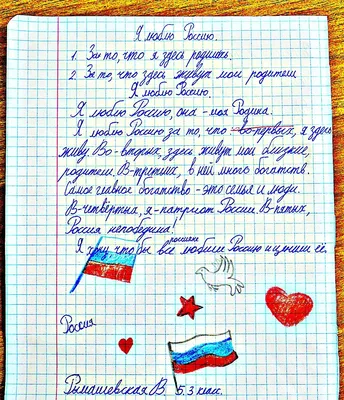 Я люблю Россию.
1. За то, что я здесь родилась.
2. За то, что здесь живут мои родители
Я люблю Россию.
Я люблю Россию, она - моя Родина.
Я люблю Россию за то, что во-первых, я здесь
живу. Во-вторых, здесь живут мои близкие,
родители. В-третьих, в ней много богатств.
Самое главное богатство - это семья и люди.
В-четвёртых, я - патриот России. В-пятых,
Россия непобедима!
Я хочу, чтобы все россияне любили Россию и ценили её.
Россия
Рымашевская В. 5.3 класс.